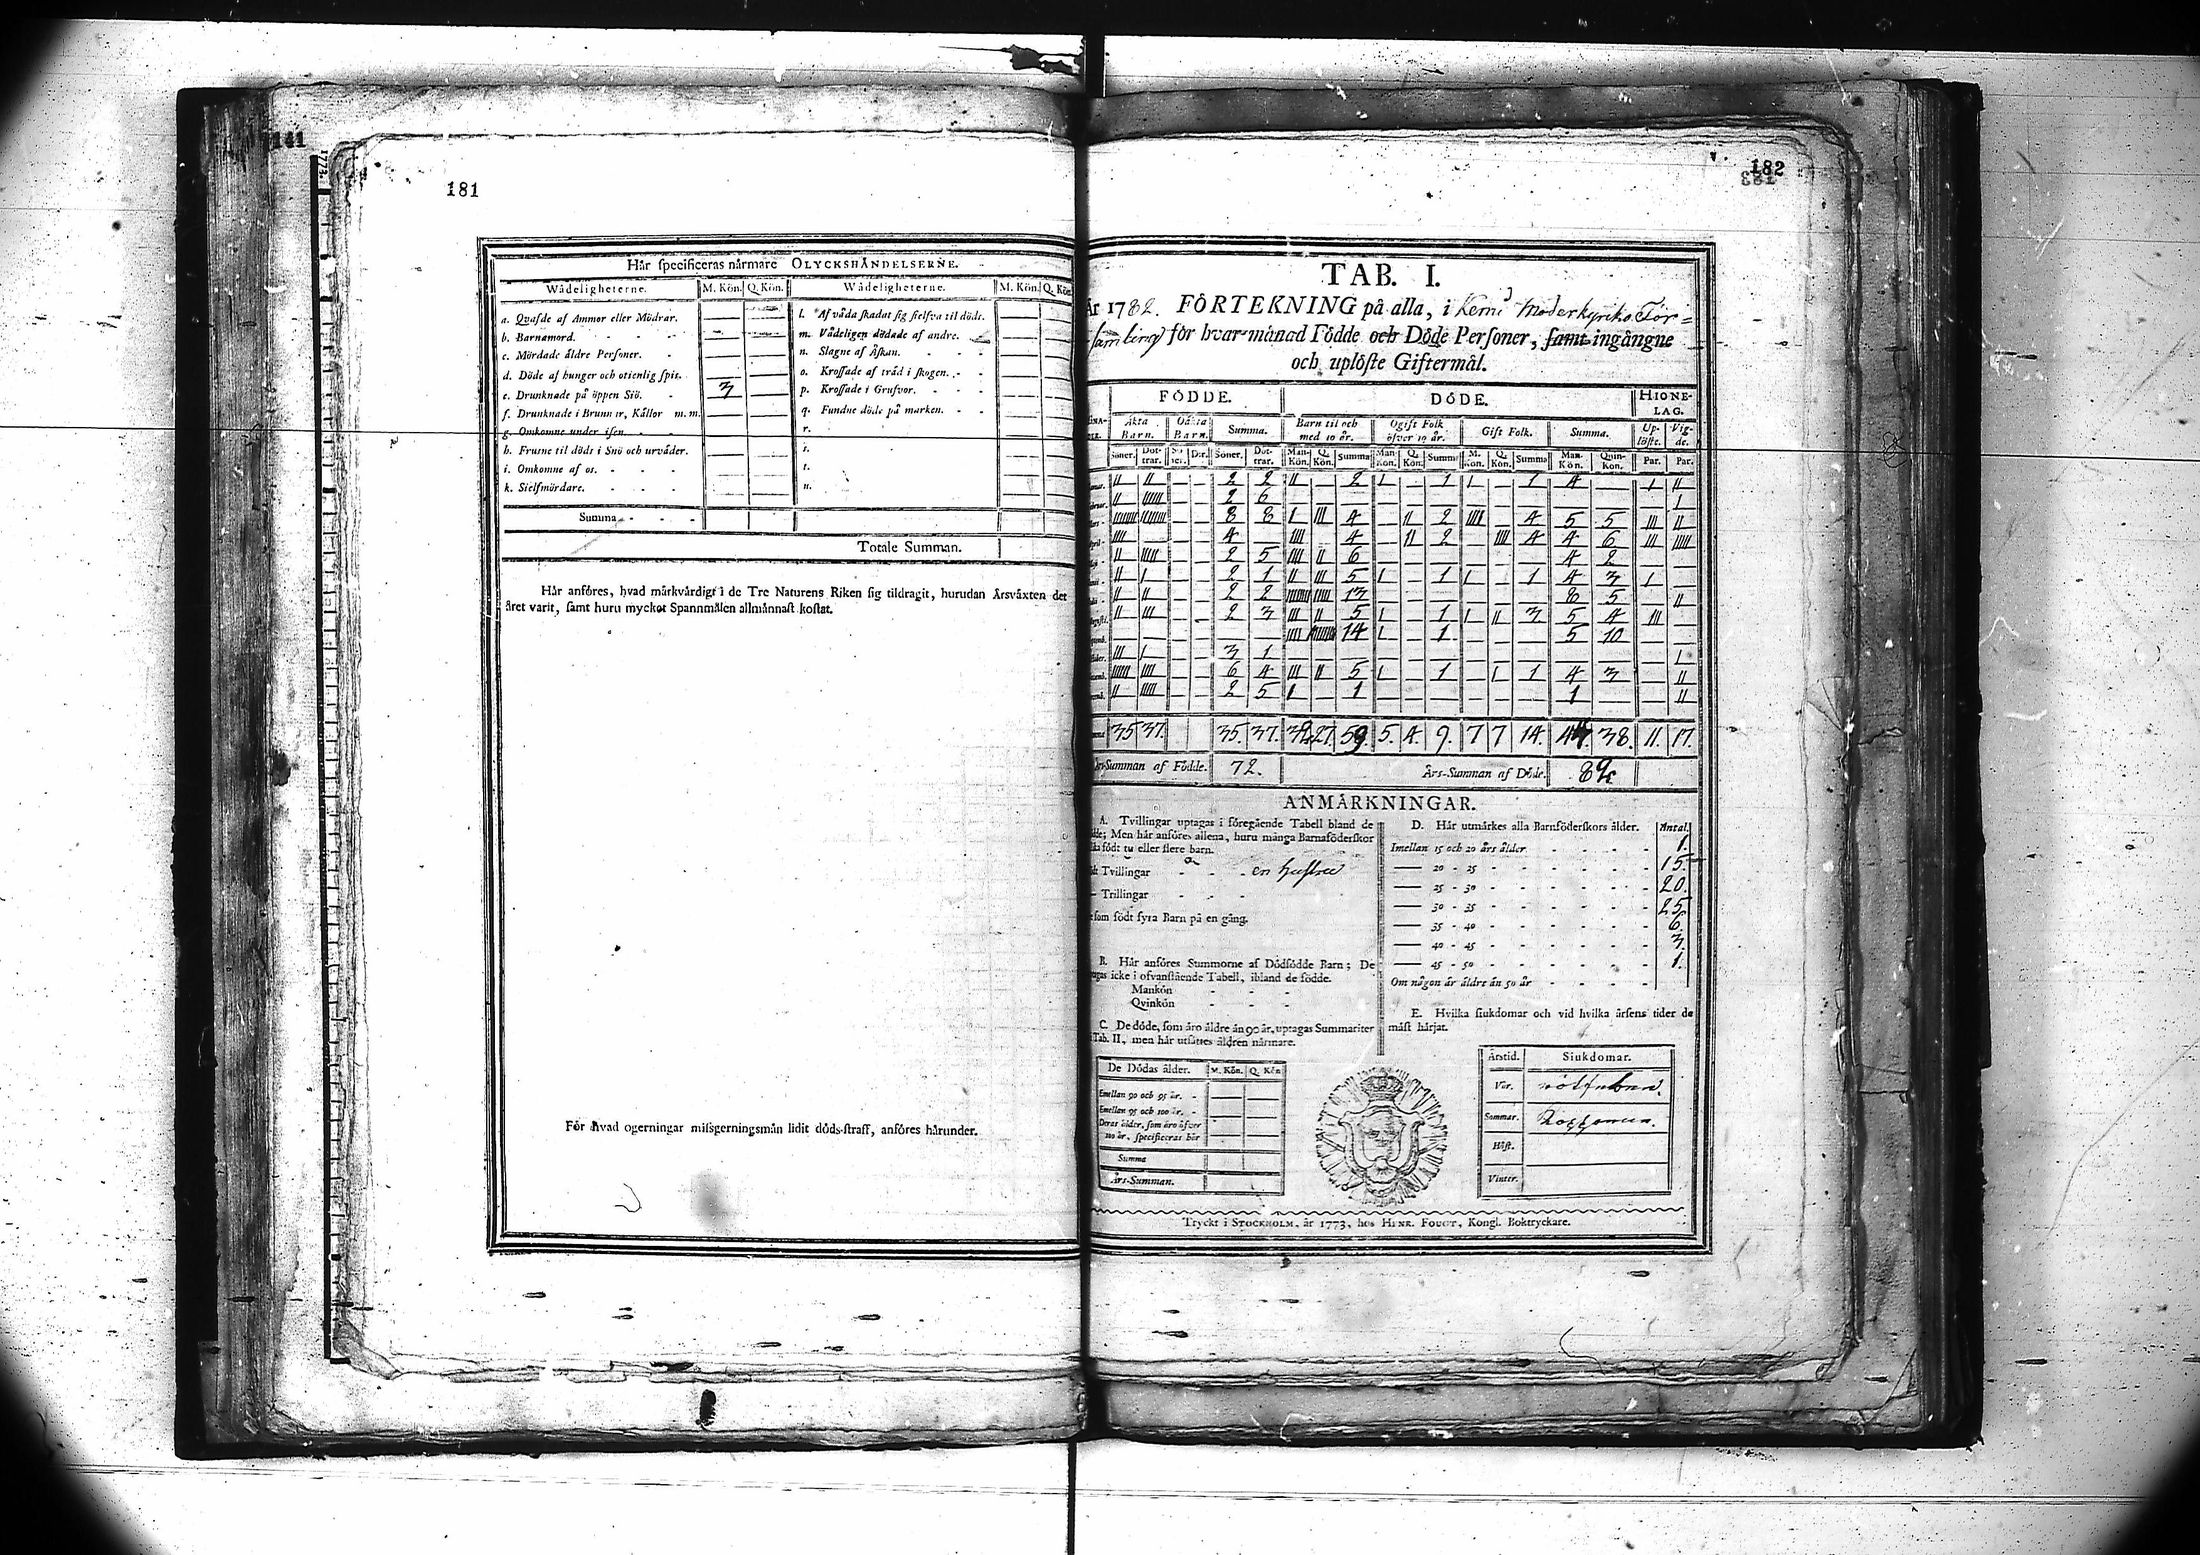 141
181
Här specificeras närmare OLYCKSHÄNDELSERNE.
Wådeligheterne. M. Kön. Q. Kön. Wådeligheterne. M. Kön. Q. Kön
a. Qvafde af Ammor eller Mödrar. — — l. Af våda skadat sig sielfva til döds. — —
b. Barnamord. — — m. Vådeligen dödade af andre. — —
c. Mördade äldre Personer. — — n. Slagne af Åskan. — —
d. Döde af hunger och otienlig spis. — — o. Krossade af träd i skogen. — —
e. Drunknade på öppen Siö. 3 — p. Krossade i Grufvor. — —
f. Drunknade i Brunnar, Källor m. m. — — q. Fundne döde på marken. — —
g. Omkomne under isen. — — r.
h. Frusne til döds i Snö och urväder. — — s.
i. Omkomne af os. — — t.
k. Sielfmördare. — — u.
Summa
Totale Summan.
Här anföres, hvad märkvärdigt i de Tre Naturens Riken sig tildragit, hurudan Årsväxten det
året varit, samt huru mycket Spannmålen allmännast kostat.
För hvad ogerningar missgerningsmän lidit döds-straff, anföres härunder.
182
183
TAB. I.
År 1782. FÖRTEKNING på alla, i Kemi Moderkyrko För=
samling för hvar månad Födde och Döde Personer, samt ingångne
och uplöste Giftermål.
FÖDDE. DÖDE. HIONE-
LAG.
Äkta Barn. Oäkta Barn. Summa. Barn til och med 10 år. Ogift Folk öfver 10 år. Gift Folk. Summa. Up-löste. Vig-de.
Söner. Döt-trar. Sö-ner. D:r. Söner. Döt-trar. Man-Kön. Q. Kön. Summa Man-Kön. Q. Kön. Summa M. Kön. Q. Kön. Summa Man-Kön. Quin-Kön. Par. Par.
II II — — 2 2 II — 2 I — 1 I — 1 4 — I II
II IIIIII — — 2 6 — — — — — — — — — — — — I
IIIIIIII IIIIIIII — — 8 8 I III 4 — II 2 IIII — 4 5 5 III II
IIII — — — 4 — IIII — 4 — II 2 — IIII 4 4 6 III IIIII
II IIIII — — 2 5 IIII II 6 — — — — — — 4 2 — —
II I — — 2 1 II III 5 I — 1 I — 1 4 3 I —
II II — — 2 2 IIIIIIII IIIII 13 — — — — — — 8 5 — II
II III — — 2 3 III II 5 I — 1 I II 3 5 4 III —
— — — — — — IIII IIIIIIIIII 14 I — 1 — — — 5 10 — —
III I — — 3 1 — — — — — — — — — — — — I
IIIIII IIII — — 6 4 III II 5 I — 1 — I 1 4 3 — II
II IIIII — — 2 5 I — 1 — — — — — — 1 — — II
35 37. 35. 37. 32 27. 59 5. 4. 9. 7 7 14. 44 38. 11. 17.
Års-Summan af Födde. 72. Års-Summan af Döde. 82
ANMÄRKNINGAR.
A. Tvillingar uptagas i föregående Tabell bland de
Födde; Men här anföres allena, huru många Barnaföderskor
födt tu eller flere barn.
Tvillingar - - - en hustru
— Trillingar - - -
som födt fyra Barn på en gång.
B. Här anföres Summorne af Dödfödde Barn; De
icke i ofvanstående Tabell, ibland de födde.
Mankön - - -
Qvinkön - - -
C. De döde, som äro äldre än 90 år, uptagas Summariter
i Tab. II, men här utsättes åldren närmare.
De Dödas ålder. M. Kön. Q. Kön
Emellan 90 och 95 år. — —
Emellan 95 och 100 år. — —
Deras ålder, som äro öfver
100 år, specificeras här — —
Summa
Års-Summan.
D. Här utmärkes alla Barnföderskors ålder. Antal.
Imellan 15 och 20 års ålder - - - 1.
— 20 - 25 - - - 15.
— 25 - 30 - - - 20.
— 30 - 35 - - - 25.
— 35 - 40 - - - 6.
— 40 - 45 - - - 3.
— 45 - 50 - - - 1.
Om någon är äldre än 50 år
E. Hvilka siukdomar och vid hvilka årsens tider de
mäst härjat.
Årstid. Siukdomar.
Vår. rötfeber.
Sommar. Koppor.
Höst.
Vinter.
Tryckt i STOCKHOLM, år 1773, hos HENR. FOUGT, Kongl. Boktryckare.